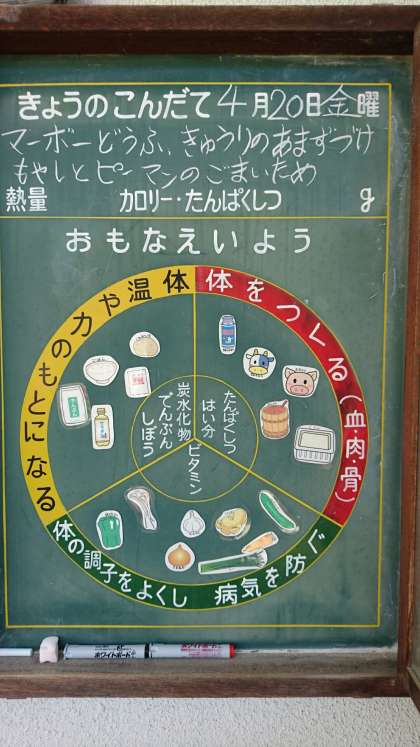 きょうのこんだて 4月20日金曜
マーボーどうふ、きゅうりのあまずづけ
もやしとピーマンのごまいため
熱量 カロリー・たんぱくしつ g
おもなえいよう
熱や力のもとになる
体をつくる(血・肉・骨)
炭水化物
でんぷん
しぼう
たんぱくしつ
はい分
ビタミン
体の調子をよくし 病気を防ぐ
ホワイトボード
ホワイトボード